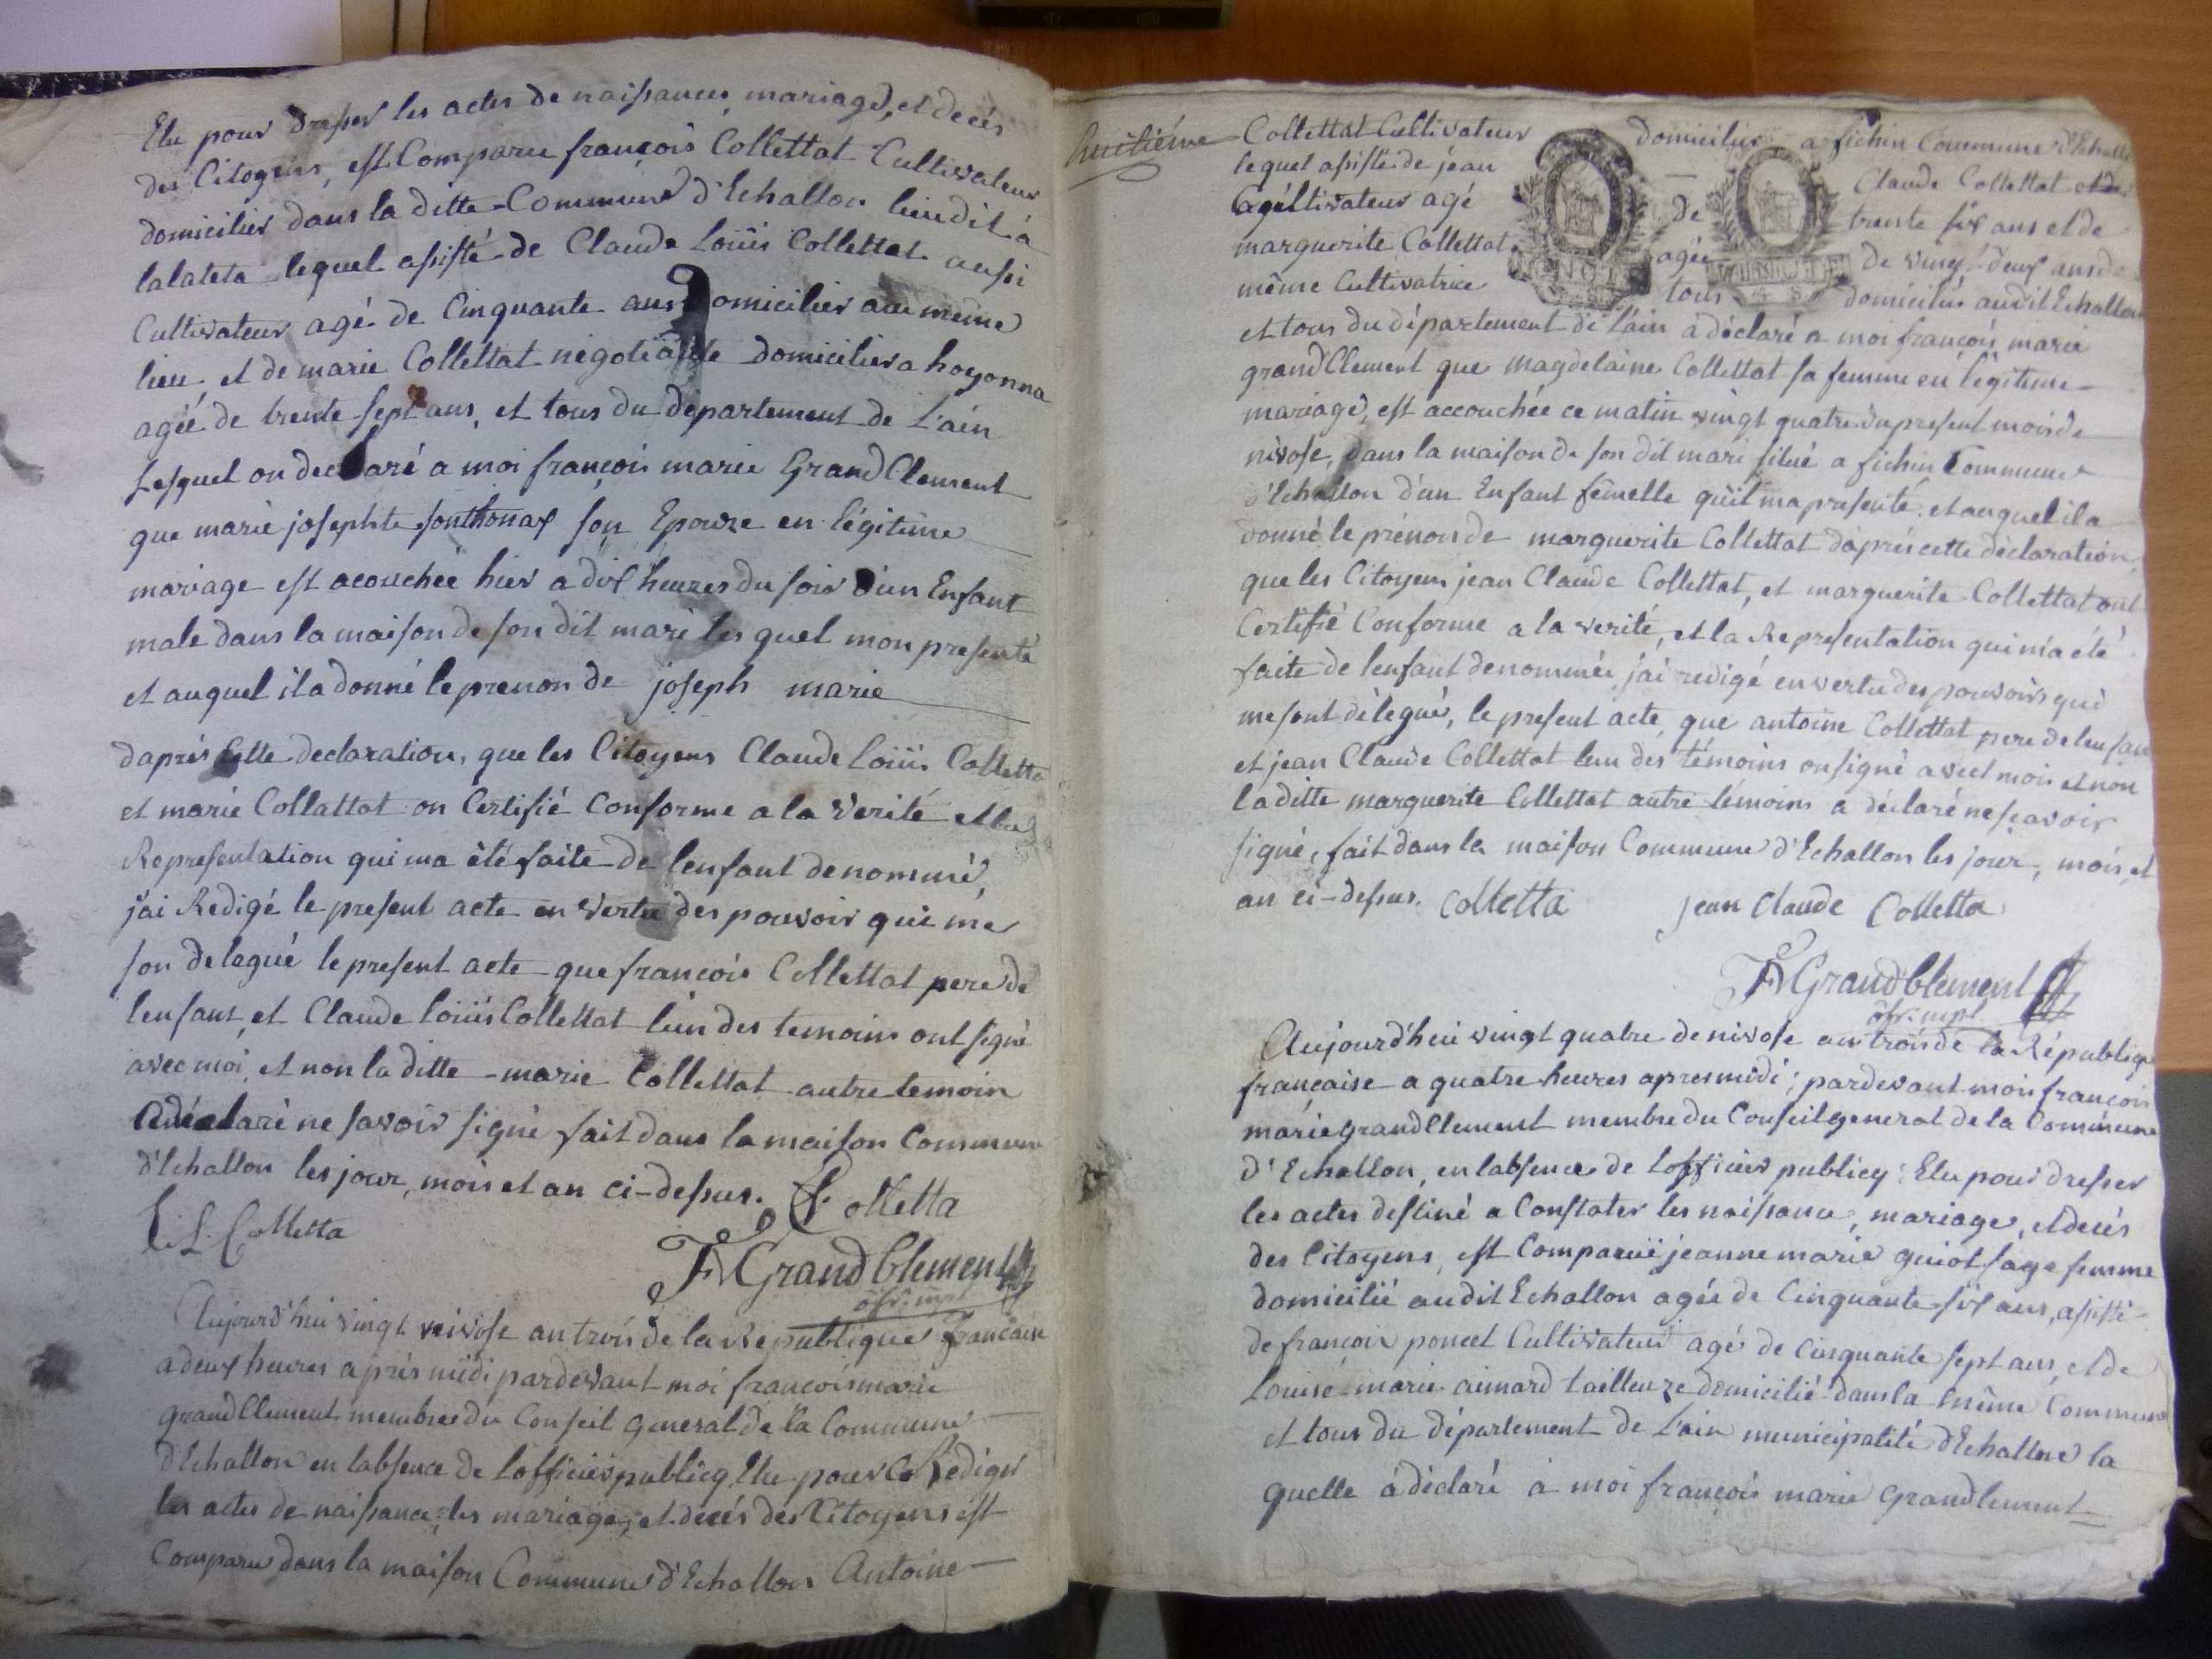 Elu pour dresser les actes de naissances, mariage, et decés
des Citoyens, est Comparu françois Collettat Cultivateur
domicilier dans la ditte Commune d'Echallon lieu dit à
lalateta lequel assisté de Claude Loüis Collettat aussi
Cultivateur agé de Cinquante ans domicilier au même
lieu et de marie Collettat négotiante domicilier a hoyonna
agée de trente sept ans, et tous du département de L'ain
Lesquel on declaré a moi françois marie GrandClement
que marie josephte sonthonax son Epouze en légitime
mariage est acouchée hier a dix heuzes du soir d'un Enfant
male dans la maison de son dit mari les quel mon presenté
et auquel il a donné le prenon de joseph marie
daprés Cette declaration, que les Citoyens Claude Loüis Colletta
et marie Collattat on Certifié Conforme a la Verité et la
Representation qui ma été faite de lenfant denommé,
j'ai Redigé le present acte en Vertu des pouvoir qui me
son delagué le present acte que françois Collettat pere de
lenfant, et Claude loüis Collettat lun des temoins ont signé
avec moi, et non la ditte marie Collettat autre temoin
a déclaré ne savoir signé fait dans la maison Commune
d'Echallon les jour, mois et an ci-dessus. f. Colletta
C. L. Colletta
FMGrandClement
offr. mpl
Aujourd'hui vingt nivose an trois de la Republique francaise
a deux heures aprés midi pardevant moi françois marie
grandClement membre du Conseil General de la Commune
d'Echallon en labsence de lofficier publicq Elu pour Rediger
les actes de naissance, les mariage, et decés des Citoyens est
Comparu dans la maison Commune d'Echallon Antoine
huitiéme
Collettat Cultivateur domicilier a fichin Commune d'Echallon
lequel assisté de jean Claude Collettat
Cultivateur agé de trente six ans et de
marguerite Collettat agée de vingt deux ans
même Cultivatrice tous domicilié audit Echallon
et tous du département de L'ain à déclaré a moi françois marie
grandClement que magdelaine Collettat sa femme en légitime
mariage, est accouchée ce matin vingt quatre du present mois de
nivose, dans la maison de son dit mari situé a fichin Commune
d'Echallon d'un Enfant fêmelle qu'il ma presenté et auquel il a
donné le prénon de marguerite Collettat daprés cette déclaration
que les Citoyens jean Claude Collettat, et marguerite Collettat ont
Certifié Conforme a la verité, et la Representation qui m'a été
faite de lenfant denommée j'ai redigé en vertu des pouvoirs qui
me sont délegué, le present acte, que antoine Collettat pere de lenfan
et jean Claude Collettat lun des témoins on signé avect moi et non
la ditte marguerite Collettat autre témoins a déclaré ne scavoir
signé, fait dans la maison Commune d'Echallon les jour, mois, et
an ci-dessus. Colletta jean Claude Colletta
FMGrandClement
offr. mpl
Aujourd'hui vingt quatre de nivose an trois de la Républiqe
française a quatre heures apres midi; pardevant moi françois
marie grandClement membre du Conseil general de la Commune
d'Echallon, en labsence de Lofficier publicq; Elu pour dresser
les actes destiné a Constater les naissance, mariage, et decés
des Citoyens, est Comparuë jeanne marie guiot sage femme
domicilié audit Echallon agée de Cinquante six ans, assisté
de françois poncet Cultivateur agé de Cinquante sept ans, et de
Louise marie aimard tailleuze domicilié dans la même Commune
et tous du département de L'ain municipalité d'Echallon la
quelle à déclaré à moi françois marie grandlement